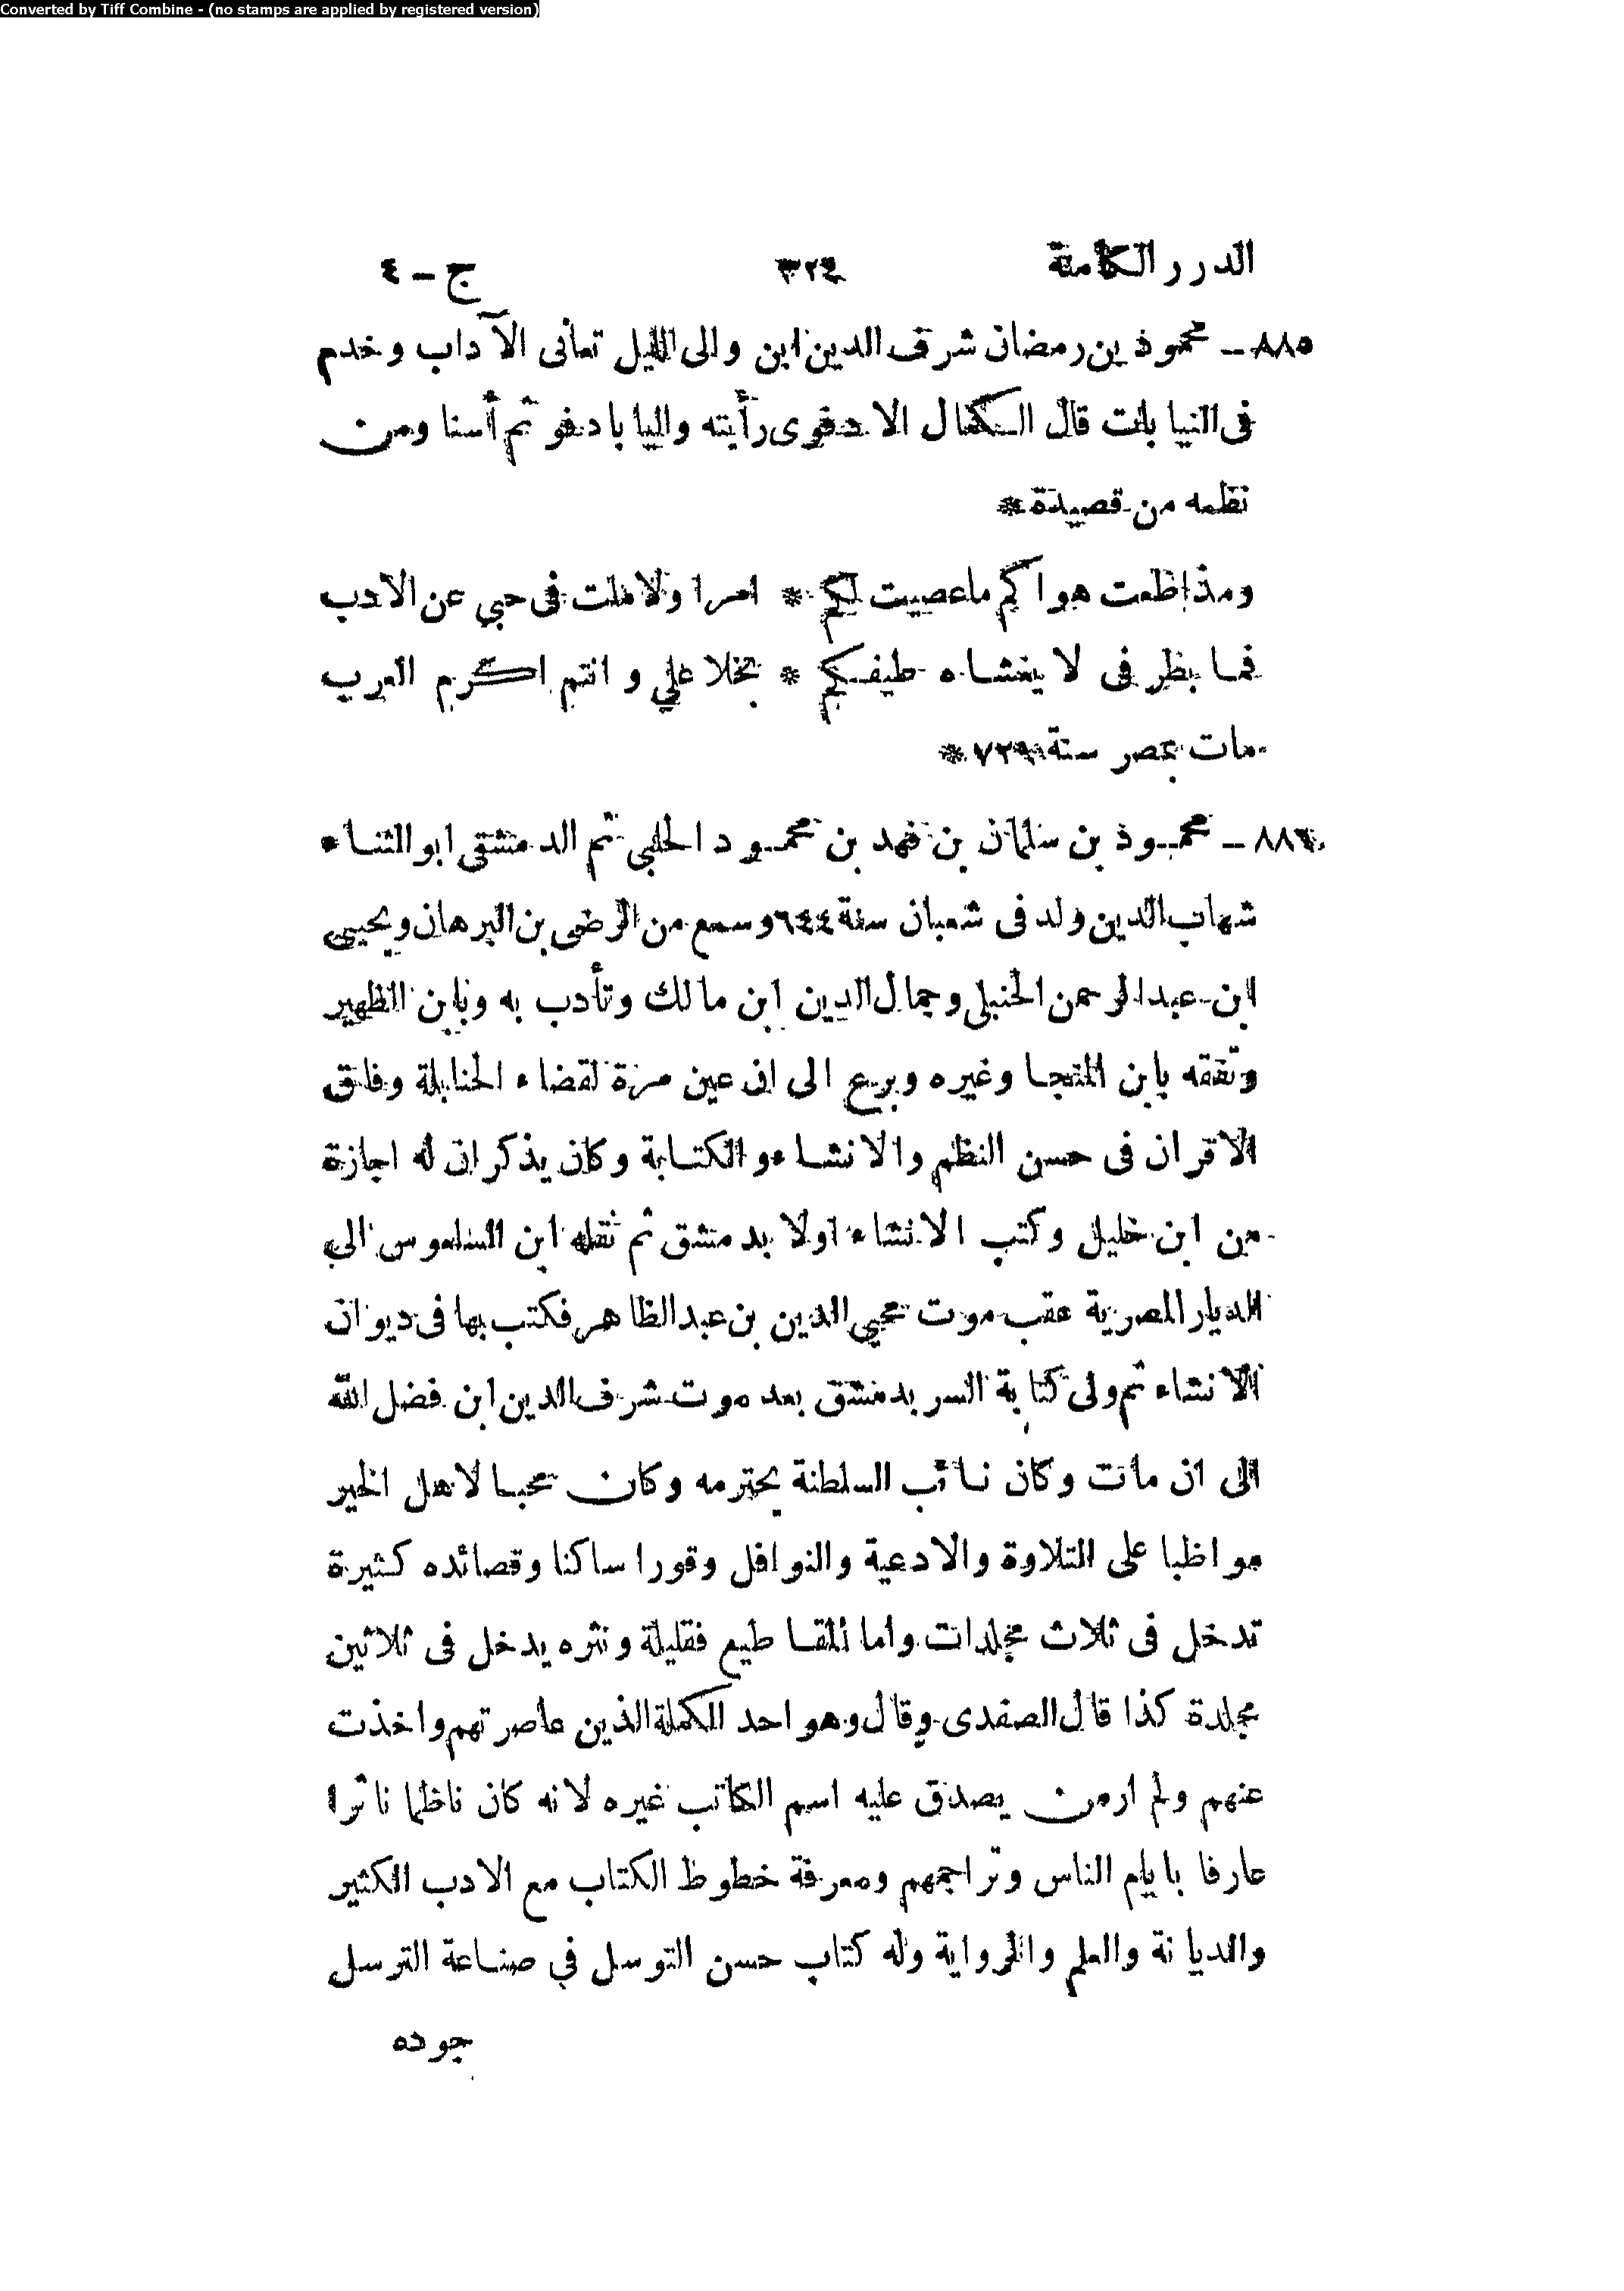 Converted by Tiff Combine - (no stamps are applied by registered version)
الدرر الكامنة ٣٢٤ ج - ٤
٨٨٥ - محمود بن رمضان شرف الدين ابن والى الليل تعانى الآداب وخدم
فى النيابات قال الكمال الادفوى رأيته واليا بادفو ثم أسنا ومن
نظمه من قصيدة *
ومذ اطعت هواكم ما عصيت لكم * امرا ولا ملت فى حبي عن الادب
فما بطرفى لا يغشاه طيفكم * بخلا علي وانتم اكرم العرب
مات بمصر سنة ٧٢٩ *
٨٨٦ - محمود بن سلمان بن فهد بن محمود الحلبي ثم الدمشقى ابو الثناء
شهاب الدين ولد فى شعبان سنة ٦٤٤ وسمع من الرضى بن البرهان ويحيى
ابن عبد الرحمن الحنبلى وجمال الدين ابن مالك وتأدب به وبابن الظهير
وتفقه بابن المنجا وغيره وبرع الى ان عين مرة لقضاء الحنابلة وفاق
الاقران فى حسن النظم والانشاء والكتابة وكان يذكر ان له اجازة
من ابن خليل وكتب الانشاء اولا بدمشق ثم نقله ابن السلعوس الى
الديار المصرية عقب موت محيي الدين بن عبد الظاهر فكتب بها فى ديوان
الانشاء ثم ولى كتابة السر بدمشق بعد موت شرف الدين ابن فضل الله
الى ان مات وكان نائب السلطنة يحترمه وكان محبا لاهل الخير
مواظبا على التلاوة والادعية والنوافل وقورا ساكنا وقصائده كثيرة
تدخل فى ثلاث مجلدات واما المقاطيع فقليلة ونثره يدخل فى ثلاثين
مجلدة كذا قال الصفدى وقال وهو احد الكملة الذين عاصرتهم واخذت
عنهم ولم ار من يصدق عليه اسم الكاتب غيره لانه كان ناظما ناثرا
عارفا بايام الناس وتراجمهم ومعرفة خطوط الكتاب مع الادب الكثير
والديانة والعلم والرواية وله كتاب حسن التوسل في صناعة الترسل
جوده